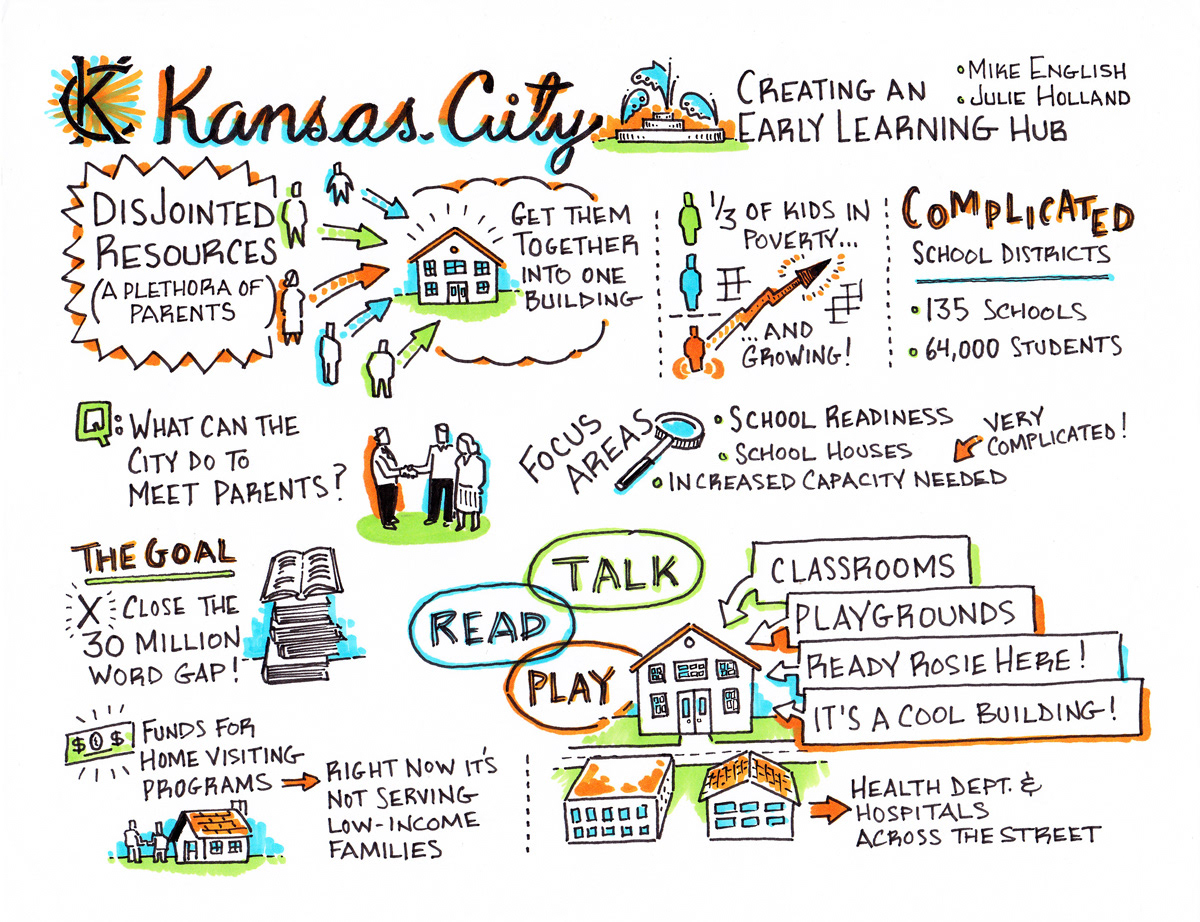 KC Kansas City
CREATING AN
EARLY LEARNING HUB
• MIKE ENGLISH
• JULIE HOLLAND
DISJOINTED
RESOURCES
(A PLETHORA OF
PARENTS)
GET THEM
TOGETHER
INTO ONE
BUILDING
1/3 OF KIDS IN
POVERTY...
...AND
GROWING!
COMPLICATED
SCHOOL DISTRICTS
• 135 SCHOOLS
• 64,000 STUDENTS
Q: WHAT CAN THE
CITY DO TO
MEET PARENTS?
FOCUS
AREAS
• SCHOOL READINESS
• SCHOOL HOUSES
• INCREASED CAPACITY NEEDED
VERY
COMPLICATED!
THE GOAL
X CLOSE THE
30 MILLION
WORD GAP!
TALK
READ
PLAY
CLASSROOMS
PLAYGROUNDS
READY ROSIE HERE!
IT'S A COOL BUILDING!
$ O $
FUNDS FOR
HOME VISITING
PROGRAMS
RIGHT NOW IT'S
NOT SERVING
LOW-INCOME
FAMILIES
HEALTH DEPT. &
HOSPITALS
ACROSS THE STREET